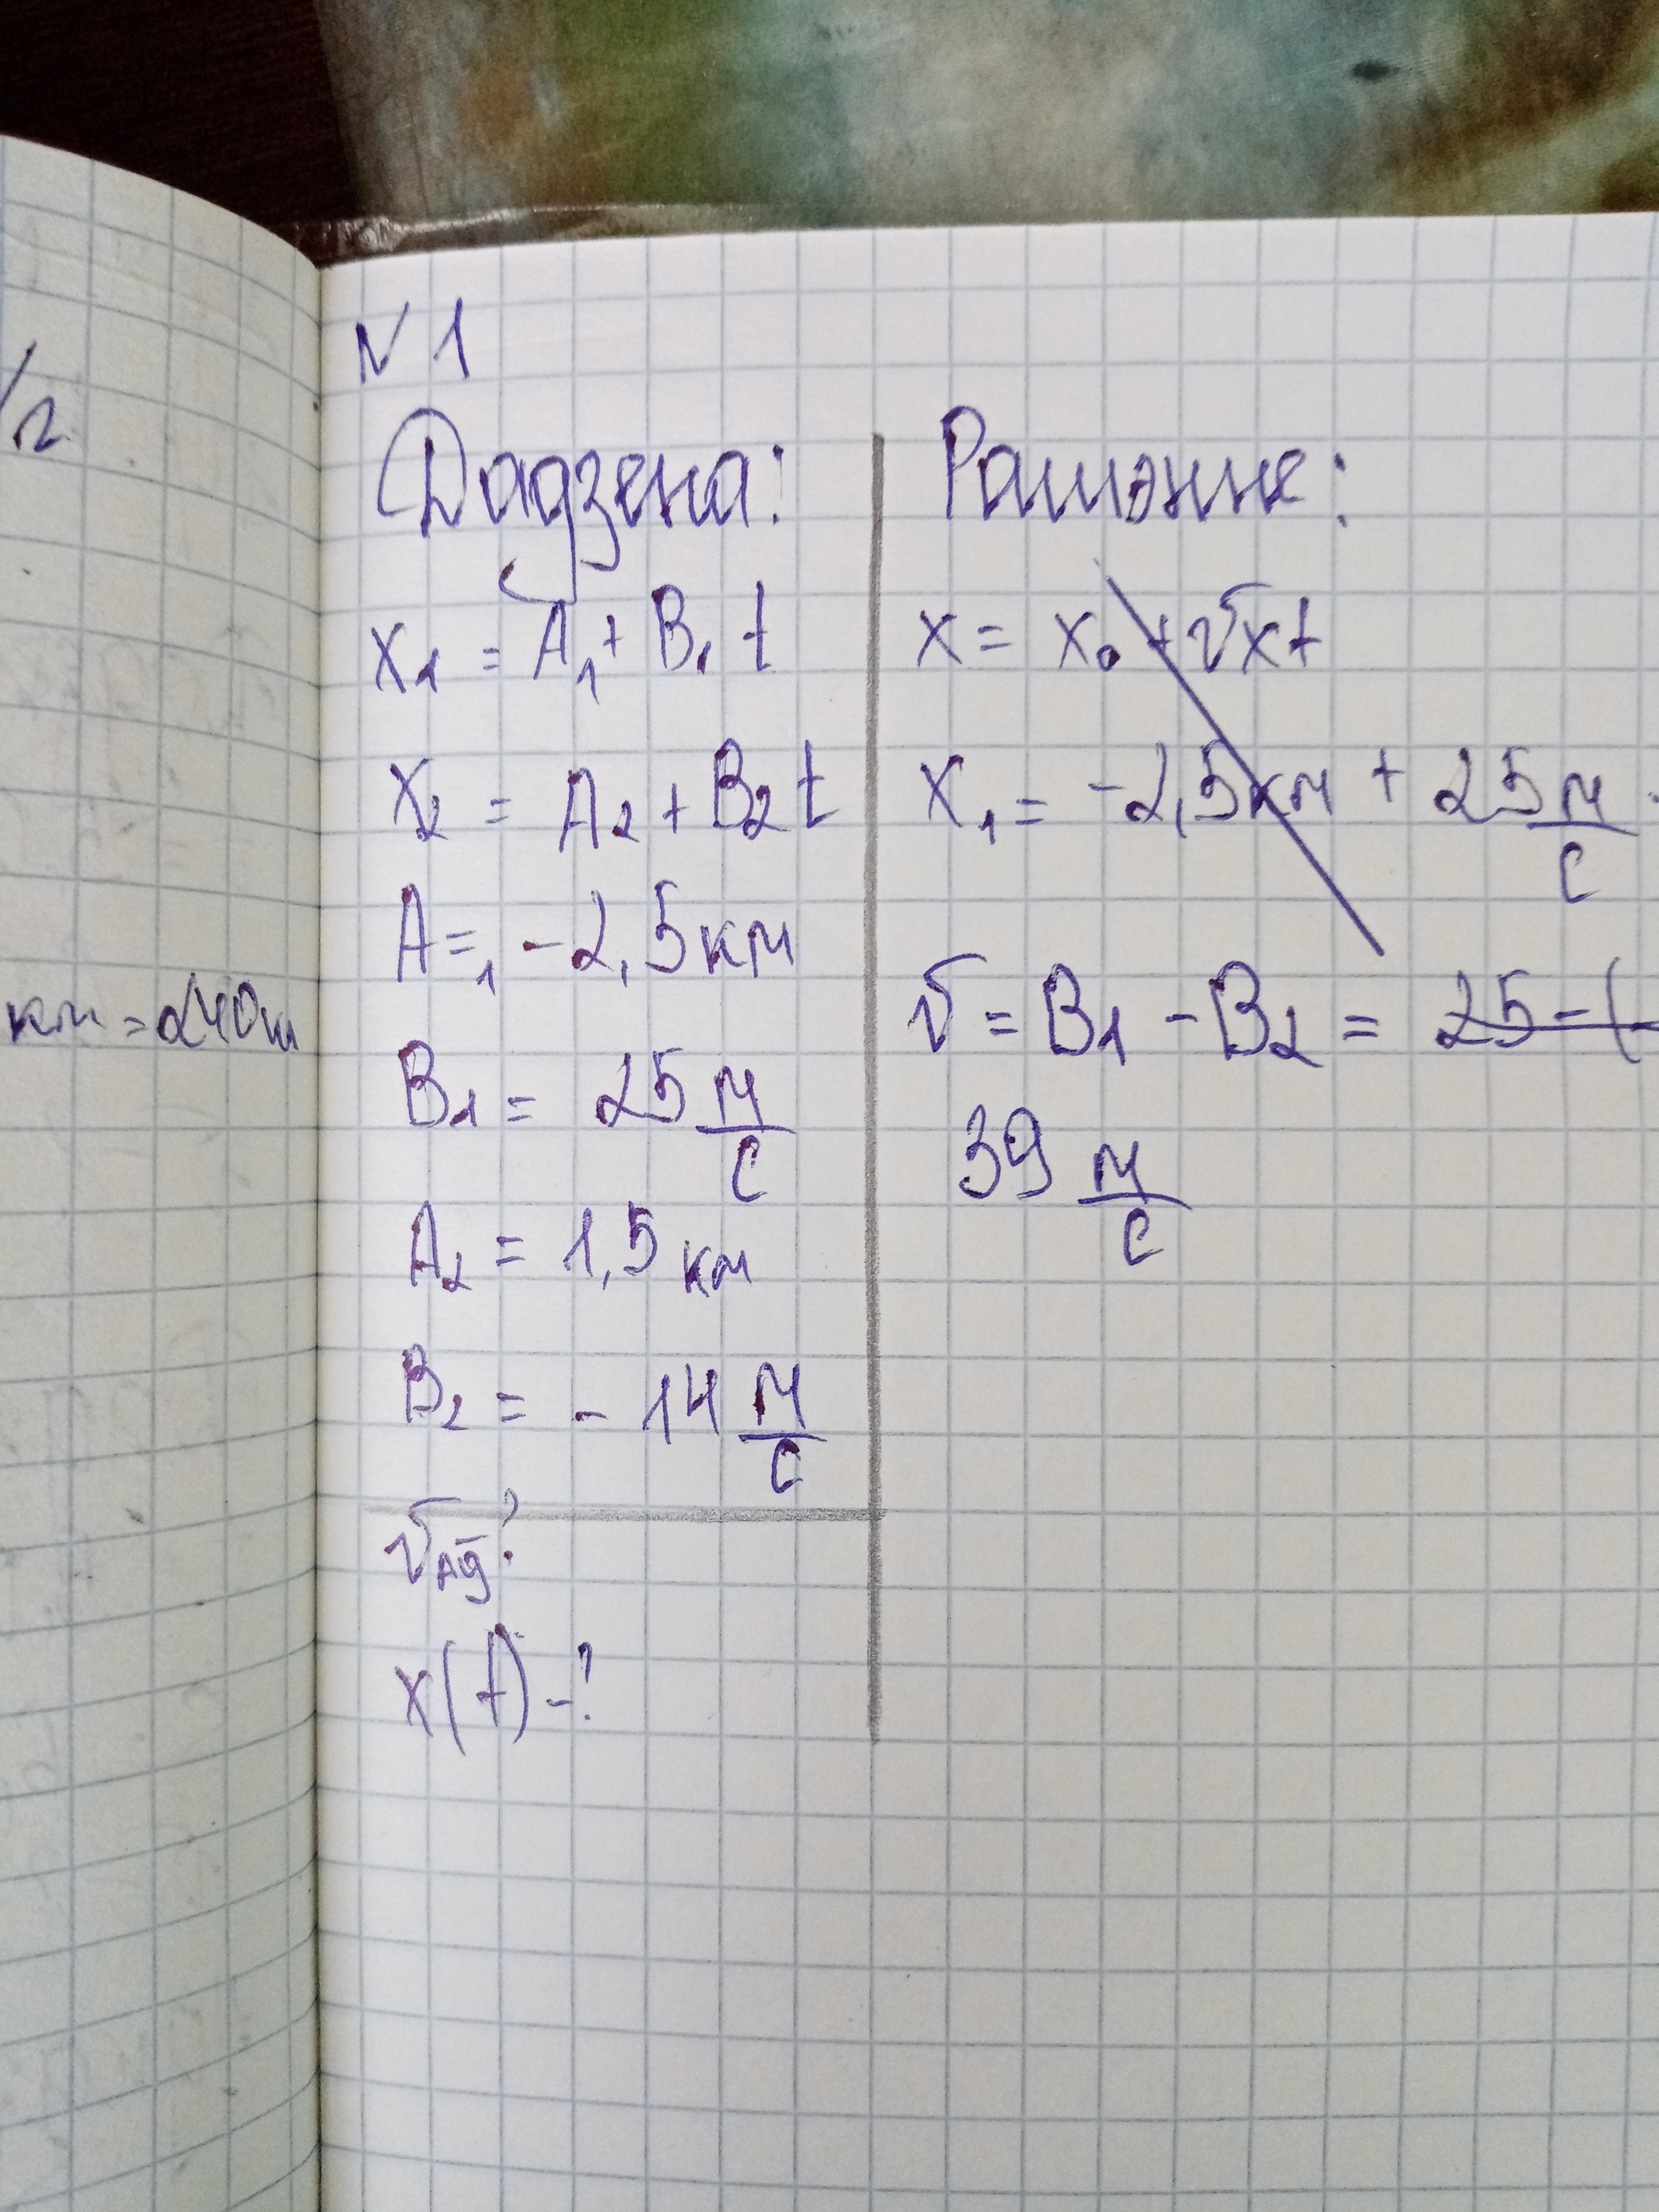 /2
км = 240м
N 1
Дадзена:
x₁ = A₁ + B₁ t
x₂ = A₂ + B₂ t
A=₁ -2,5 км
B₁ = 25 м/с
A₂ = 1,5 км
B₂ = - 14 м/с
v
x(t) - ?
Рашэнне:
x = x₀ + vxt
x₁ = -2,5км + 25 м/с ·
v = B₁ - B₂ = 25 - (-
39 м/с